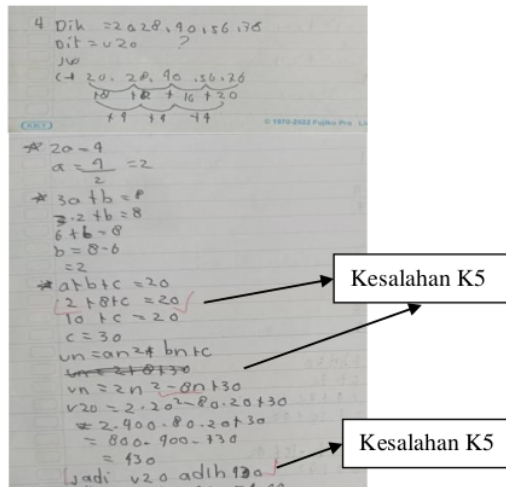 4 Dik = 20 28, 40, 56, 76
Dit = U20 ?
Jwb
20. 28, 40, 56, 76
+8 +12 + 16 + 20
+4 +4 +4
© 1970-2022 Fujiko Pro
2a = 4
a = 4/2 = 2
3a + b = 8
3.2 + b = 8
6 + b = 8
b = 8-6
= 2
a+b+c = 20
2 + 8 + c = 20
10 + c = 20
c = 30
Un = an2 + bn + c
Un = 2+8+30
Un = 2n2 - 8n + 30
U20 = 2.20² - 80.20 + 30
= 2.400 - 80.20 + 30
= 800 - 400 - 330
= 430
Jadi U20 adlh 430
Kesalahan K5
Kesalahan K5